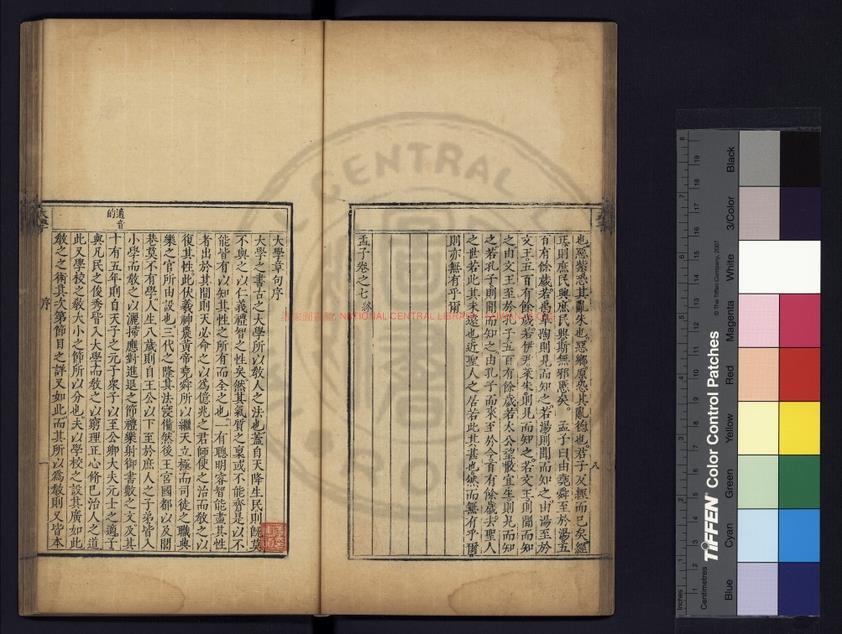 也惡紫恐其亂朱也惡鄉原恐其亂德也君子反經而已矣經
正則庶民興庶民興斯無邪慝矣。孟子曰由堯舜至於湯五
百有餘歲若禹皐陶則見而知之若湯則聞而知之由湯至於
文王五百有餘歲若伊尹萊朱則見而知之若文王則聞而知
之由文王至於孔子五百有餘歲若太公望散宜生則見而知
之若孔子則聞而知之由孔子而來至於今百有餘歲去聖人
之世若此其未遠也近聖人之居若此其甚也然而無有乎爾
則亦無有乎爾
孟子卷之七 終
大學章句序
大學之書古之大學所以敎人之法也蓋自天降生民則旣莫
不與之以仁義禮智之性矣然其氣質之稟或不能齊是以不
能皆有以知其性之所有而全之也一有聰明睿智能盡其性
者出於其間則天必命之以爲億兆之君師使之治而敎之以
復其性此伏羲神農黃帝堯舜所以繼天立極而司徒之職典
樂之官所由設也三代之隆其法寖備然後王宮國都以及閭
巷莫不有學人生八歲則自王公以下至於庶人之子弟皆入
小學而敎之以灑掃應對進退之節禮樂射御書數之文及其
十有五年則自天子之元子衆子以至公卿大夫元士之適子
與凡民之俊秀皆入大學而敎之以窮理正心脩己治人之道
此又學校之敎大小之節所以分也夫以學校之設其廣如此
敎之之術其次第節目之詳又如此而其所以爲敎則又皆本
適音
的
序
NATIONAL CENTRAL LIBRARY
TIFFEN Color Control Patches
© The Tiffen Company, 2007
Centimetres
Inches
Blue
Cyan
Green
Yellow
Red
Magenta
White
3/Color
Black